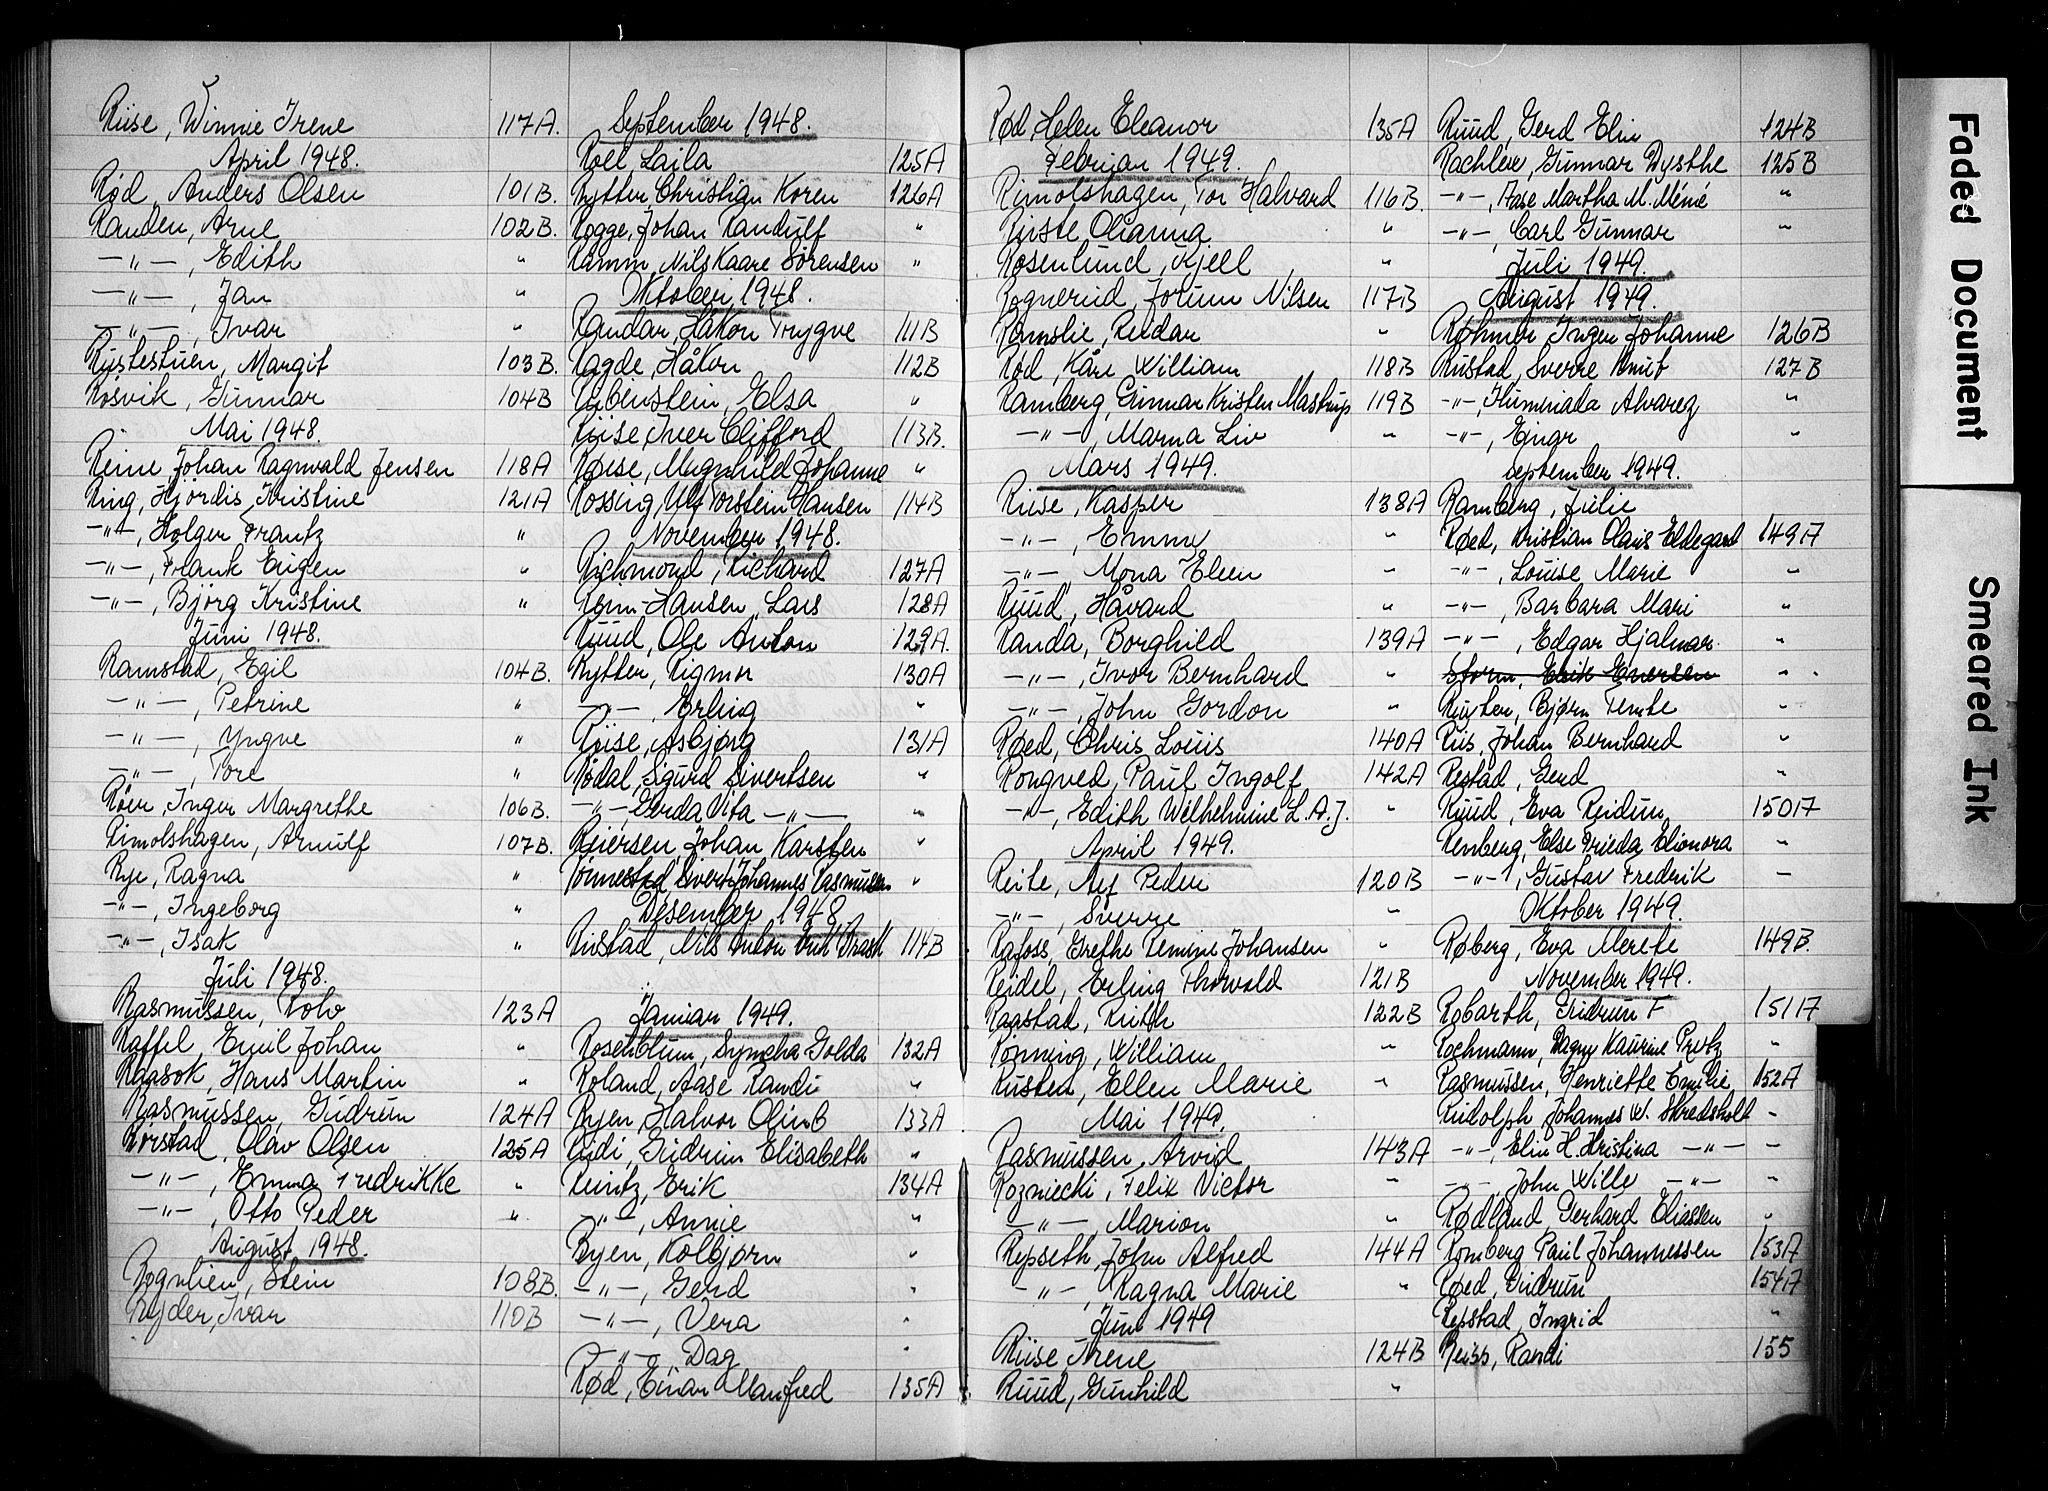 Riise, Winnie Irene 117A.
April 1948.
Rød, Anders Olsen 101B.
Randen, Arne 102B.
-"-, Edith "
-"-, Jan "
-"-, Ivar "
Rustestuen, Margit 103B.
Røsvik, Gunnar 104B
Mai 1948.
Reine, Johan Ragnvald Jensen 118A
Ring, Hjördis Kristine 121A
-"-, Holger Frantz "
-"-, Frank Eugen "
-"-, Bjørg Kristine "
Juni 1948.
Ramstad, Egil 104B.
-"-, Petrine "
-"-, Yngve "
-"-, Tore "
Röer, Inger Margrethe 106B.
Rimolshagen, Arnulf 107B.
Rye, Ragna "
-"-, Ingeborg "
-"-, Isak "
Juli 1948.
Rasmussen, 123A
Raffel, Emil Johan "
Raasok, Hans Martin "
Rasmussen, Gudrun 124A
Rørstad, Olav Olsen 125A
-"-, Emma Fredrikke "
-"-, Otto Peder "
August 1948.
Rognlien, Stein 108B.
Ryder, Ivar 110B
September 1948.
Roel, Laila 125A
Rytter, Christian Koren 126A
Rogge, Johan Randulf "
Ramm, Nils Kaare Sørensen "
Oktober 1948.
Randar, Håkon Trygve 111B
Ragde, Håkon 112B
Rubinstein, Elsa "
Riise, Iver Clifford 113B.
Røise, Magnhild Johanne "
Rossing, Ulf Torstein Hansen 114B
November 1948.
Richmond, Richard 127A
Reim-Hansen, Lars 128A
Ruud, Ole Anton 129A.
Rytter, Rigmor 130A
-"-, Erling "
Riise, Asbjørg 131A
Rødal, Sigurd Sivertsen "
-"-, Gerda Vita -"- "
Reiersen, Johan Karsten "
Rønnestad Sivert Johannes Rasmussen "
Desember 1948
Rustad, Nils Anton Erik Brask 114B
Januar 1949.
Rosenblum, Symcha Golda 132A
Roland, Aase Randi "
Ryen, Halvor Olimb 133A
Rudi, Gudrun Elisabeth "
Reintz, Erik 134A
-"-, Annie "
Ryen, Kolbjørn "
-"-, Gerd "
-"-, Vera "
-"- Dag "
Rød, Einar Manfred 135A
Rød, Helen Eleanor 135A
Februar 1949.
Rimolshagen, Tor Halvard 116B.
Ruste Olianna "
Rosenlund, Kjell "
Rognerud, Jorunn Nilsen 117B
Ramslie, Reidar "
Rød, Kåre William 118B
Ramberg, Gunnar Kristen Mastrup 119B
-"-, Marna Liv "
Mars 1949.
Riise, Kasper 138A
-"-, Emmy "
-"-, Mona Eleen "
Ruud, Håvard "
Randa, Borghild 139A
-"-, Ivor Bernhard "
-"-, John Gordon "
Røed, Chris Louis 140A
Rongved, Paul Ingolf 142A
-"-, Edith Wilhelmine L.A.J. "
April 1949.
Reite, Alf Peder 120B
-"-, Sverre "
Rafoss, Grethe Remine Johansen "
Reidel, Erling Thorvald 121B
Raastad, Ruth 122B
Rønning, William "
Rusten, Ellen Marie "
Mai 1949.
Rasmussen, Arvid 143A
Rozniecki, Felix Victor "
-"-, Marion "
Repseth, John Alfred 144A
-"-, Ragna Marie "
Juni 1949
Riise Irene 124B
Ruud, Gunhild "
Ruud, Gerd Elin 124B
Rachlew, Gunnar Dysthe 125B
-"-, Aase Martha M. Méme "
-"-, Carl Gunnar "
Juli 1949.
August 1949.
Røhmer Inger Johanne 126B
Rustad, Sverre Knut 127B
-"-, Iluminada Alvarez "
-"-, Einar "
September 1949.
Ramberg, Julie
Røed, Kristian Olais Eldegard 149A
-"-, Louise Marie "
-"-, Barbara Mari "
-"-, Edgar Hjalmar. "
Storm, Erik Enersen "
Ruyter, Bjørn Temte "
Riis, Johan Bernhard "
Restad, Gerd "
Ruud, Eva Reidun 150A
Renberg, Else Frieda Elionora "
-"-, Gustav Fredrik "
Oktober 1949.
Røberg, Eva Merete 149B.
November 1949.
Robarth, Gudrun F 151A
Rochmann, Dagny Kaurine Prytz "
Rasmussen, Henriette Emilie 152A
Rudolph, Johannes W. Skredsholt "
-"-, Elin H. Kristina -"- "
-"- John Wille -"- "
Rødland, Gerhard Eliassen "
Romberg Paul Johannessen 153A
Røed, Gudrun 154A
Repstad, Ingrid "
Reiss, Randi 155
Faded Document
Smeared Ink